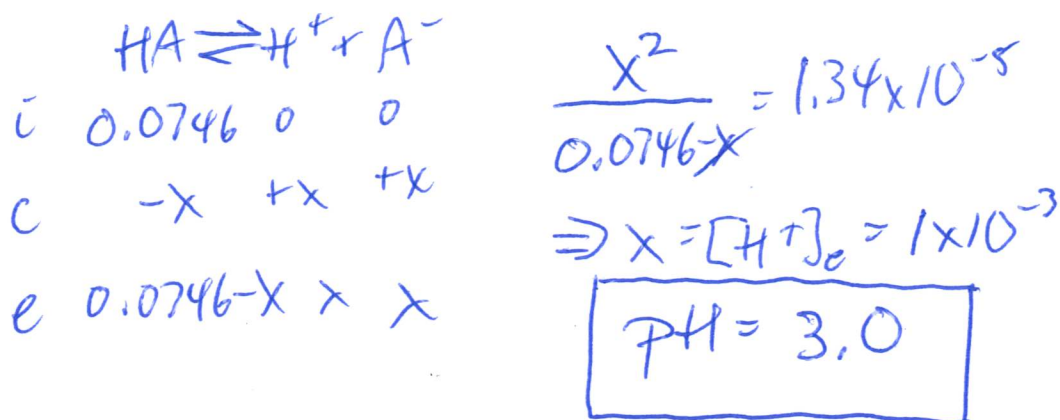 HA ⇌ H⁺ + A⁻
i 0.0746 0 0
c -x +x +x
e 0.0746-x x x
x² / 0.0746-x = 1.34x10⁻⁵
⇒ x = [H+]ₑ = 1x10⁻³
pH = 3.0